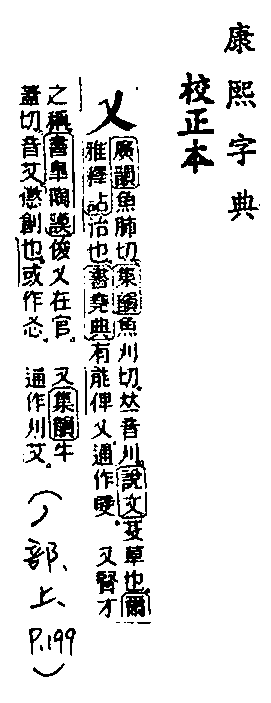 康熙字典
校正本
乂
廣韻魚肺切集韻魚刈切𠀤音刈說文芟草也爾
雅釋詁治也書堯典有能俾乂通作嬖 又賢才
之稱書皐陶謨俊乂在官 又集韻牛
蓋切音艾懲創也或作忞 通作刈艾
(丿部、上、P.199)